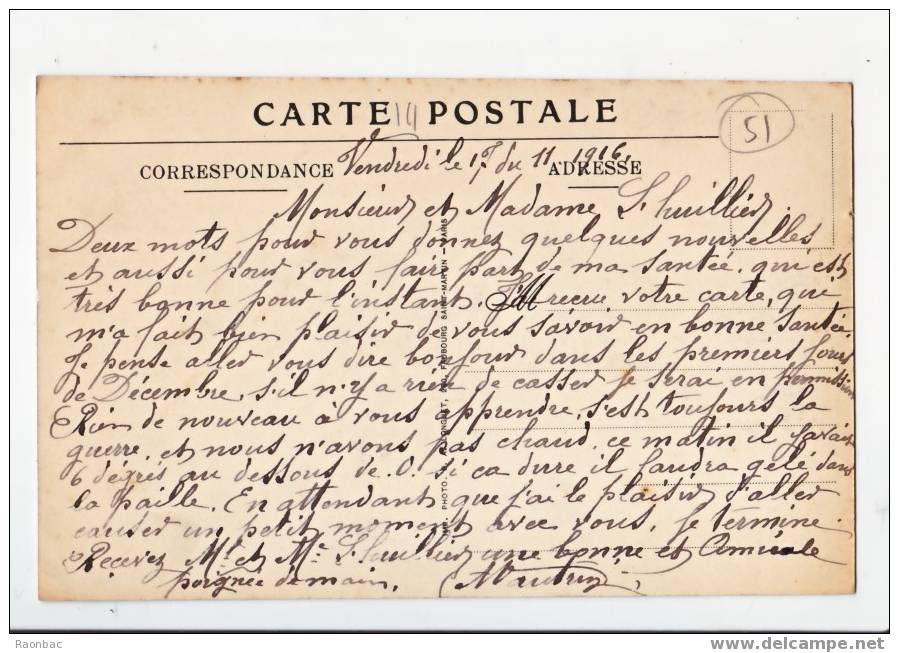 CARTE POSTALE
51
CORRESPONDANCE
ADRESSE
Vendredi le 17 du 11 1916.
Monsieur et Madame Lhuillier.
Deux mots pour vous donnez quelques nouvelles
et aussi pour vous fair part de ma santée. qui est
très bonne pour l'instant. recue votre carte, qui
m'a fait bien plaisir de vous savoir en bonne santée
Je pense aller vous dire bonjour dans les premiers jours
de Décembre, s'il n'y a rien de casser je serai en permission
Rien de nouveau a vous apprendre, s'est toujours la
guerre, et nous n'avons pas chaud, ce matin il favait
6 dégrés au dessous de 0. si ca dure il faudra gelé dans
la paille. En attendant que j'ai le plaisir d'aller
causer un petit moment avec vous, je termine.
Recevez Mr et Me Lhuillier une bonne et Amicale
poignée de main.
FAUBOURG SAINT-MARTIN - PARIS
PHOTO.
Raonbac
www.delcampe.net